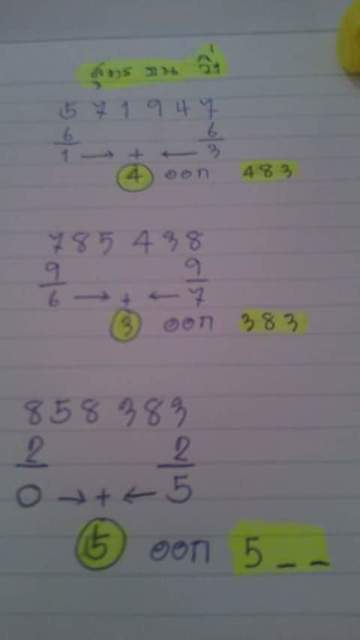 สูตร บน วิ่ง
571947
6 6
1 → + ← 3
4 ออก 483
785 438
9 9
6 → + ← 7
3 ออก 383
858 383
2 2
0 → + ← 5
5 ออก 5 _ _